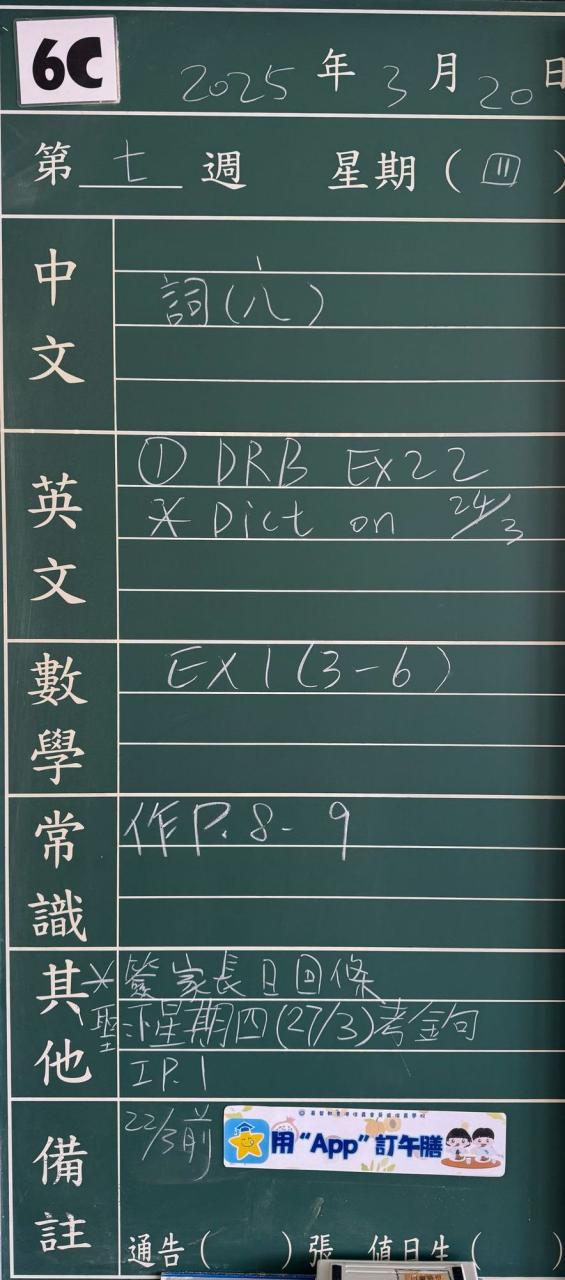 6C
2025 年 3 月 20 日
第 七 週 星期 ( 四 )
中文
詞(八)
英文
① DRB Ex22
* Dict on 24/3
數學
EX1(3-6)
常識
作P.8-9
其他
* 簽家長日回條
聖 下星期四(27/3)考金句
IP.1
備註
22/3前
用“App”訂午膳
通告 ( ) 張 值日生 ( )